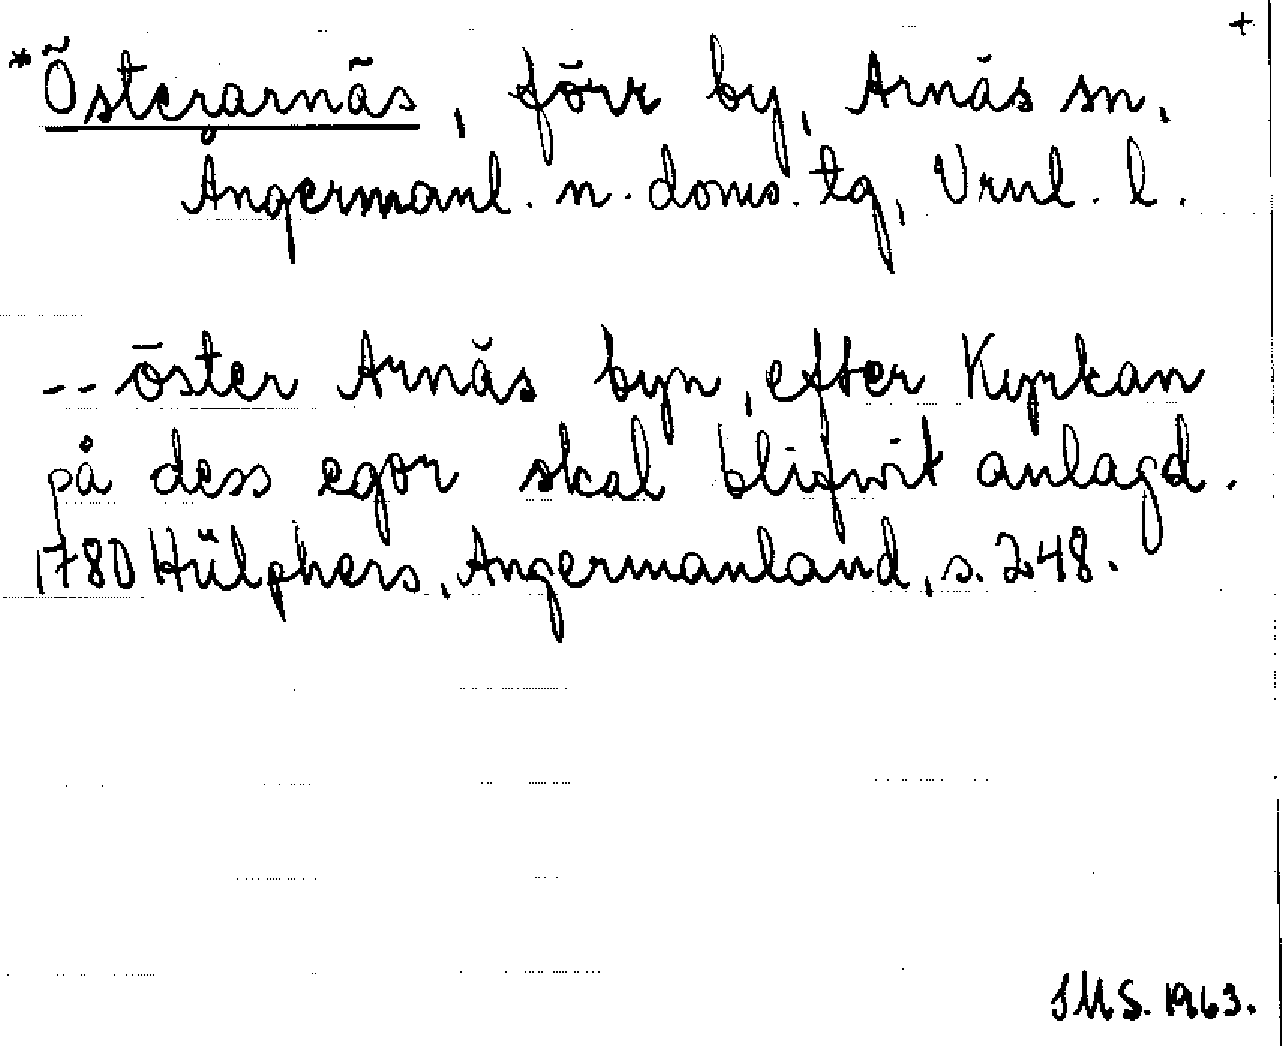 +
*Österarnäs, förr by, Arnäs sn,
Ångermanl. n. doms. tg, Vrnl. l.
-- öster Arnäs byn, efter Kyrkan
på dess egor skal blifwit anlagd.
1780 Hülphers, Angermanland, s. 248.
SMS. 1963.